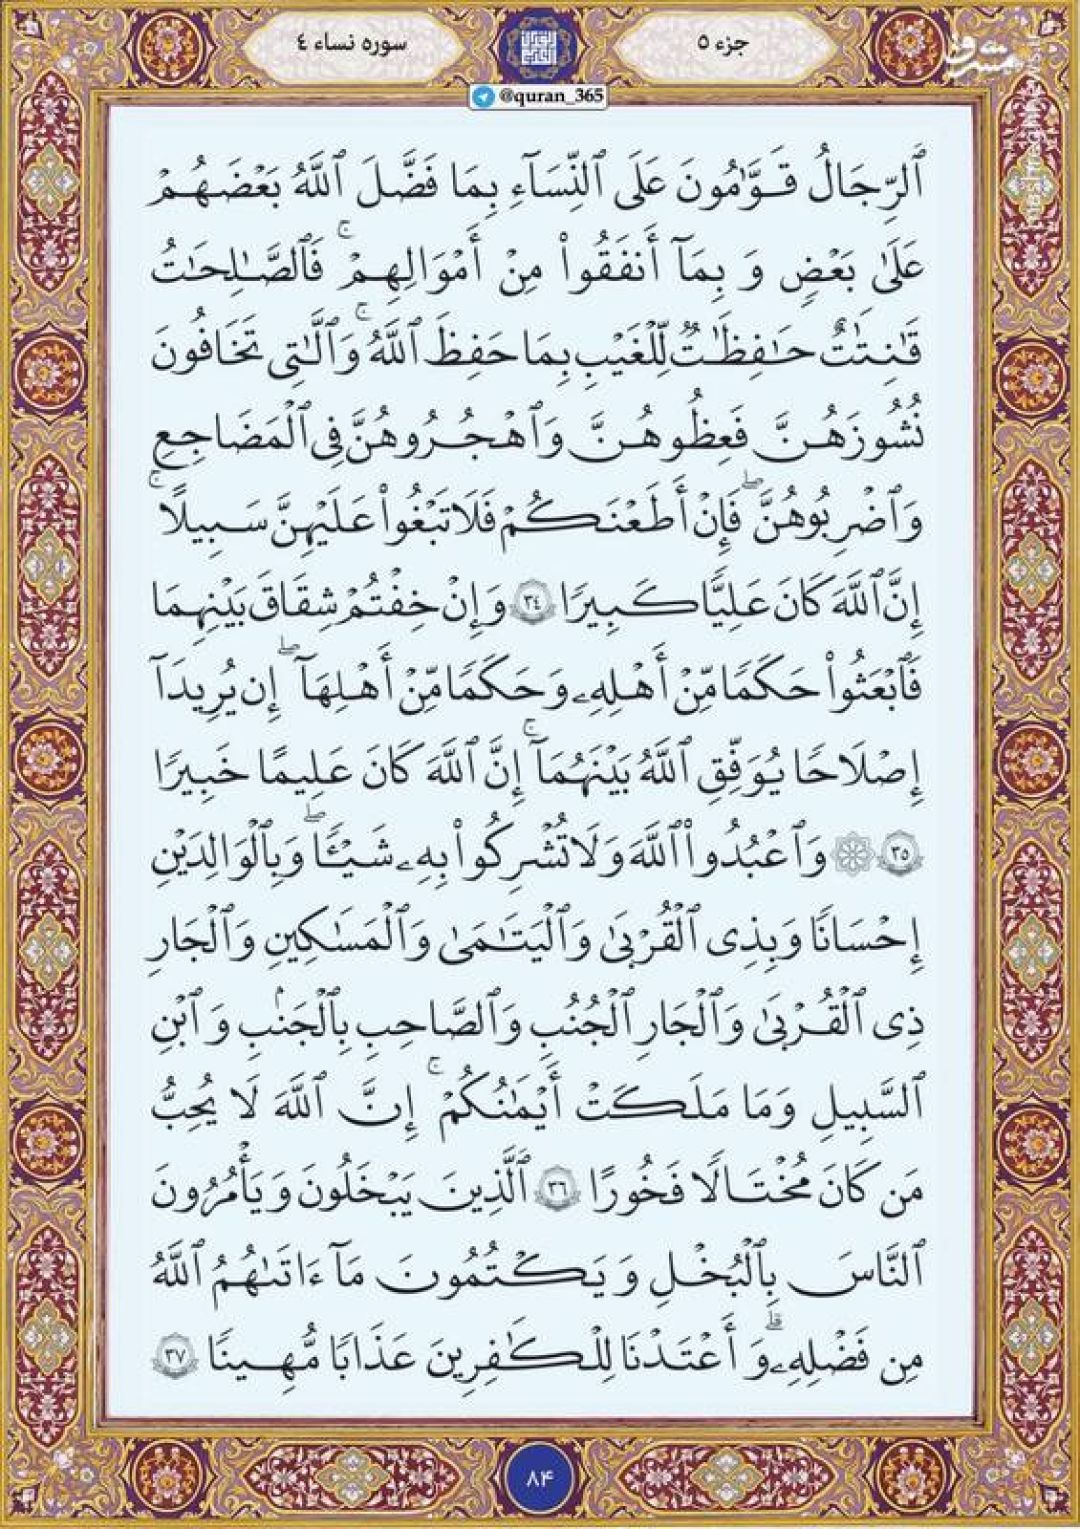 جزء ۵
سوره نساء ٤
@quran_365
مشرق
mashreghnews.ir
ٱلرِّجَالُ قَوَّٰمُونَ عَلَى ٱلنِّسَآءِ بِمَا فَضَّلَ ٱللَّهُ بَعْضَهُمْ
عَلَىٰ بَعْضٍ وَ بِمَآ أَنفَقُوا۟ مِنْ أَمْوَٰلِهِمْ ۚ فَٱلصَّـٰلِحَـٰتُ
قَـٰنِتَـٰتٌ حَـٰفِظَـٰتٌ لِّلْغَيْبِ بِمَا حَفِظَ ٱللَّهُ ۚ وَٱلَّـٰتِى تَخَافُونَ
نُشُوزَهُنَّ فَعِظُوهُنَّ وَٱهْجُرُوهُنَّ فِى ٱلْمَضَاجِعِ
وَٱضْرِبُوهُنَّ ۖ فَإِنْ أَطَعْنَكُمْ فَلَا تَبْغُوا۟ عَلَيْهِنَّ سَبِيلًا ۗ
إِنَّ ٱللَّهَ كَانَ عَلِيًّا كَبِيرًا ٣٤ وَإِنْ خِفْتُمْ شِقَاقَ بَيْنِهِمَا
فَٱبْعَثُوا۟ حَكَمًا مِّنْ أَهْلِهِۦ وَحَكَمًا مِّنْ أَهْلِهَآ ۖ إِن يُرِيدَآ
إِصْلَـٰحًا يُوَفِّقِ ٱللَّهُ بَيْنَهُمَآ ۗ إِنَّ ٱللَّهَ كَانَ عَلِيمًا خَبِيرًا
٣٥ ۞ وَٱعْبُدُوا۟ ٱللَّهَ وَلَا تُشْرِكُوا۟ بِهِۦ شَيْـًٔا ۖ وَبِٱلْوَٰلِدَيْنِ
إِحْسَـٰنًا وَبِذِى ٱلْقُرْبَىٰ وَٱلْيَتَـٰمَىٰ وَٱلْمَسَـٰكِينِ وَٱلْجَارِ
ذِى ٱلْقُرْبَىٰ وَٱلْجَارِ ٱلْجُنُبِ وَٱلصَّاحِبِ بِٱلْجَنۢبِ وَ ٱبْنِ
ٱلسَّبِيلِ وَمَا مَلَكَتْ أَيْمَـٰنُكُمْ ۗ إِنَّ ٱللَّهَ لَا يُحِبُّ
مَن كَانَ مُخْتَالًا فَخُورًا ٣٦ ٱلَّذِينَ يَبْخَلُونَ وَيَأْمُرُونَ
ٱلنَّاسَ بِٱلْبُخْلِ وَيَكْتُمُونَ مَآ ءَاتَىٰهُمُ ٱللَّهُ
مِن فَضْلِهِۦ ۗ وَأَعْتَدْنَا لِلْكَـٰفِرِينَ عَذَابًا مُّهِينًا ٣٧
٨۴